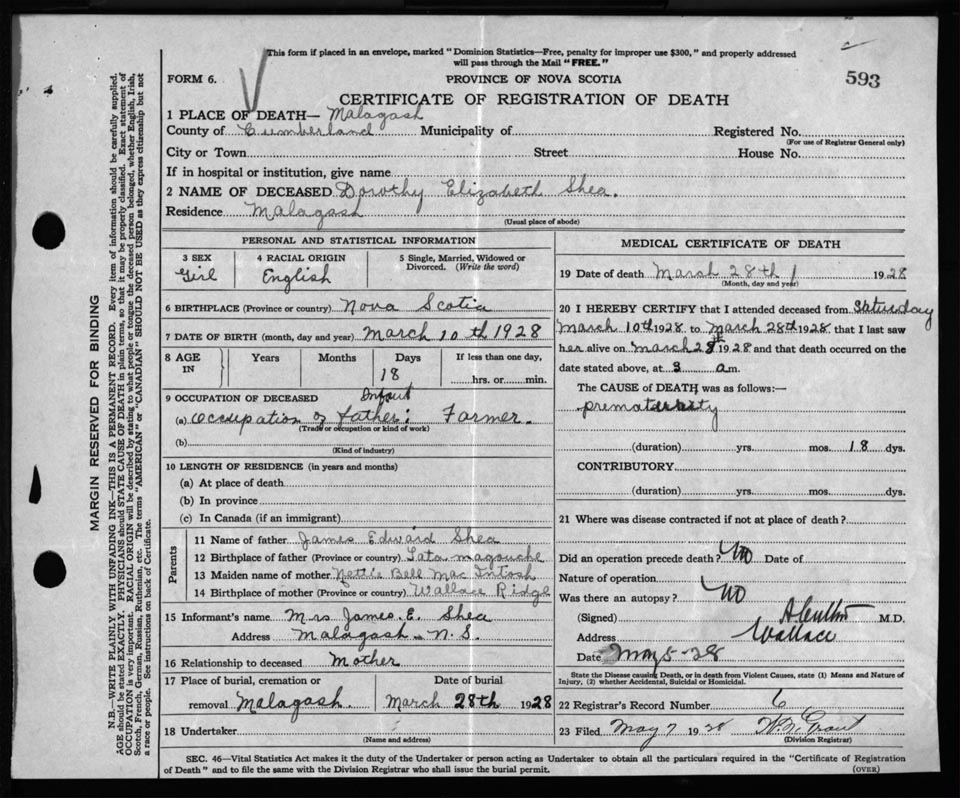 This form if placed in an envelope, marked "Dominion Statistics—Free, penalty for improper use $300," and properly addressed
will pass through the Mail "FREE."
593
FORM 6.
PROVINCE OF NOVA SCOTIA
CERTIFICATE OF REGISTRATION OF DEATH
1 PLACE OF DEATH— Malagash
County of Cumberland Municipality of Registered No.
(For use of Registrar General only)
City or Town Street House No.
If in hospital or institution, give name
2 NAME OF DECEASED Dorothy Elizabeth Shea.
Residence Malagash
(Usual place of abode)
PERSONAL AND STATISTICAL INFORMATION
3 SEX 4 RACIAL ORIGIN 5 Single, Married, Widowed or
Divorced. (Write the word)
Girl English
6 BIRTHPLACE (Province or country) Nova Scotia
7 DATE OF BIRTH (month, day and year) March 10th 1928
8 AGE IN Years Months Days If less than one day,
18 hrs. or min.
9 OCCUPATION OF DECEASED Infant
(a) Occupation of father: Farmer.
(Trade or occupation or kind of work)
(b)
(Kind of industry)
10 LENGTH OF RESIDENCE (in years and months)
(a) At place of death
(b) In province
(c) In Canada (if an immigrant)
Parents
11 Name of father James Edward Shea
12 Birthplace of father (Province or country) Tata magouche
13 Maiden name of mother Nettie Bell Mac Intosh
14 Birthplace of mother (Province or country) Wallace Ridge
15 Informant's name Mrs James. E. Shea
Address Malagash - N. S.
16 Relationship to deceased Mother
17 Place of burial, cremation or Date of burial
removal Malagash. March 28th 1928
18 Undertaker
(Name and address)
MEDICAL CERTIFICATE OF DEATH
19 Date of death March 28th 1928
(Month, day and year)
20 I HEREBY CERTIFY that I attended deceased from Saturday
March 10th 1928 to March 28th 1928 that I last saw
her alive on March 28th 1928 and that death occurred on the
date stated above, at 3 am.
The CAUSE of DEATH was as follows:—
prematurity
(duration) yrs. mos. 18 dys.
CONTRIBUTORY
(duration) yrs. mos. dys.
21 Where was disease contracted if not at place of death?
Did an operation precede death? No Date of
Nature of operation
Was there an autopsy? No
(Signed) M.D.
Address Wallace
Date May 5-28
State the Disease causing Death, or in death from Violent Causes, state (1) Means and Nature of
Injury, (2) whether Accidental, Suicidal or Homicidal.
22 Registrar's Record Number 6
23 Filed May 7 1928 W. N. Grant
(Division Registrar)
SEC. 46—Vital Statistics Act makes it the duty of the Undertaker or person acting as Undertaker to obtain all the particulars required in the "Certificate of Registration
of Death" and to file the same with the Division Registrar who shall issue the burial permit.
(OVER)
MARGIN RESERVED FOR BINDING
N.B.—WRITE PLAINLY WITH UNFADING INK—THIS IS A PERMANENT RECORD. Every item of information should be carefully supplied.
AGE should be stated EXACTLY. PHYSICIANS should STATE CAUSE OF DEATH in plain terms, so that it may be properly classified. Exact statement of
OCCUPATION is very important. RACIAL ORIGIN will be described by stating to what people or tongue the deceased person belonged, whether English, Irish,
Scotch, French, German, Russian, Ruthenian, etc. The terms "AMERICAN" or "CANADIAN" SHOULD NOT BE USED as they express citizenship but not
a race or people. See instructions on back of Certificate.